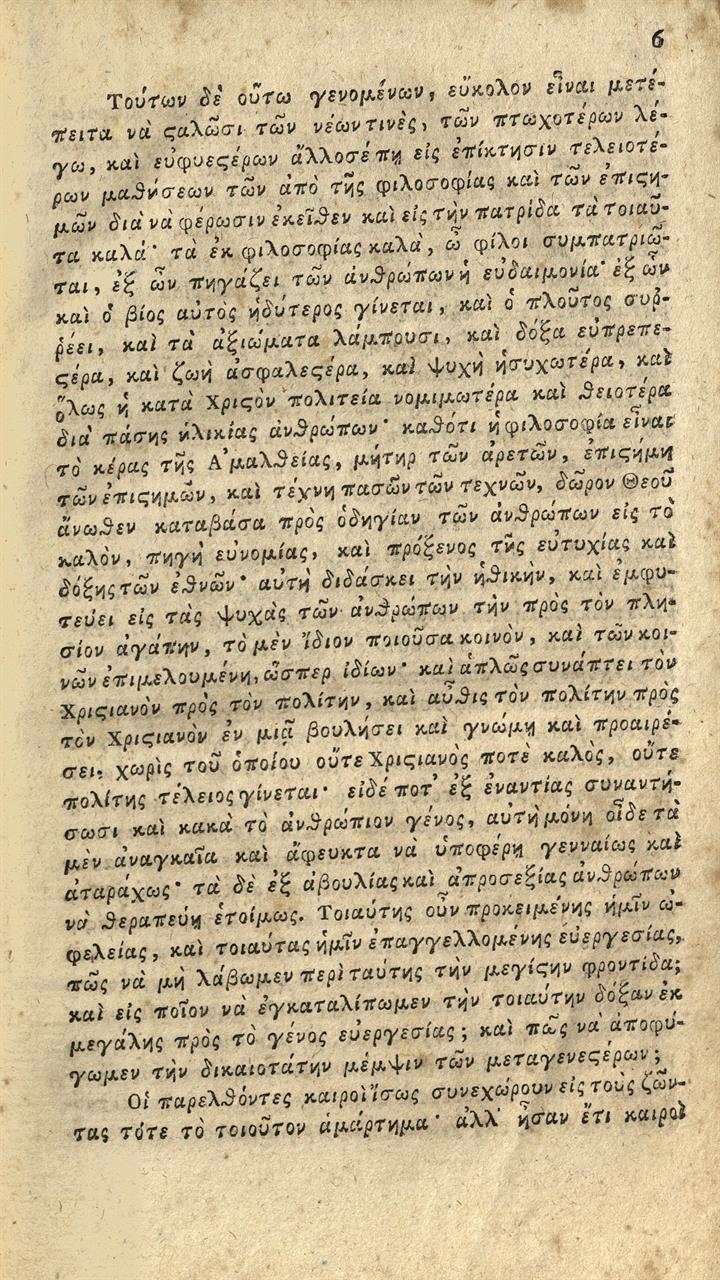 6
Τούτων δὲ οὕτω γενομένων, εὔκολον εἶναι μετέ-
πειτα νὰ ϛαλῶσι τῶν νέων τινὲς, τῶν πτωχοτέρων λέ-
γω, καὶ εὐφυεϛέρων ἄλλοσέ πη εἰς ἐπίκτησιν τελειοτέ-
ρων μαθήσεων τῶν ἀπὸ τῆς φιλοσοφίας καὶ τῶν ἐπιϛη-
μῶν διὰ νὰ φέρωσιν ἐκεῖθεν καὶ εἰς τὴν πατρίδα τὰ τοιαῦ-
τα καλά· τὰ ἐκ φιλοσοφίας καλὰ, ὦ φίλοι συμπατριῶ-
ται, ἐξ ὧν πηγάζει τῶν ἀνθρώπων ἡ εὐδαιμονία· ἐξ ὧν
καὶ ὁ βίος αὐτὸς ἡδύτερος γίνεται, καὶ ὁ πλοῦτος συρ-
ῥέει, καὶ τὰ ἀξιώματα λάμπουσι, καὶ δόξα εὐπρεπε-
ϛέρα, καὶ ζωὴ ἀσφαλεϛέρα, καὶ ψυχὴ ἡσυχωτέρα, καὶ
ὅλως ἡ κατὰ Χριϛὸν πολιτεία νομιμωτέρα καὶ θειοτέρα
διὰ πάσης ἡλικίας ἀνθρώπων· καθότι ἡ φιλοσοφία εἶναι
τὸ κέρας τῆς Ἀμαλθείας, μήτηρ τῶν ἀρετῶν, ἐπιϛήμη
τῶν ἐπιϛημῶν, καὶ τέχνη πασῶν τῶν τεχνῶν, δῶρον Θεοῦ
ἄνωθεν καταβάσα πρὸς ὁδηγίαν τῶν ἀνθρώπων εἰς τὸ
καλὸν, πηγὴ εὐνομίας, καὶ πρόξενος τῆς εὐτυχίας καὶ
δόξης τῶν ἐθνῶν· αὐτὴ διδάσκει τὴν ἠθικὴν, καὶ ἐμφυ-
τεύει εἰς τὰς ψυχὰς τῶν ἀνθρώπων τὴν πρὸς τὸν πλη-
σίον ἀγάπην, τὸ μὲν ἴδιον ποιοῦσα κοινὸν, καὶ τῶν κοι-
νῶν ἐπιμελουμένη, ὥσπερ ἰδίων· καὶ ἁπλῶς συνάπτει τὸν
Χριϛιανὸν πρὸς τὸν πολίτην, καὶ αὖθις τὸν πολίτην πρὸς
τὸν Χριϛιανὸν ἐν μιᾷ βουλήσει καὶ γνώμῃ καὶ προαιρέ-
σει, χωρὶς τοῦ ὁποίου οὔτε Χριϛιανὸς ποτὲ καλὸς, οὔτε
πολίτης τέλειος γίνεται· εἰδέ ποτ' ἐξ ἐναντίας συναντή-
σωσι καὶ κακὰ τὸ ἀνθρώπιον γένος, αὐτὴ μόνη οἶδε τὰ
μὲν ἀναγκαῖα καὶ ἄφευκτα νὰ ὑποφέρῃ γενναίως καὶ
ἀταράχως· τὰ δὲ ἐξ ἀβουλίας καὶ ἀπροσεξίας ἀνθρώπων
νὰ θεραπεύῃ ἑτοίμως. Τοιαύτης οὖν προκειμένης ἡμῖν ὠ-
φελείας, καὶ τοιαύτας ἡμῖν ἐπαγγελλομένης εὐεργεσίας,
πῶς νὰ μὴ λάβωμεν περὶ ταύτης τὴν μεγίϛην φροντίδα;
καὶ εἰς ποῖον νὰ ἐγκαταλίπωμεν τὴν τοιαύτην δόξαν ἐκ
μεγάλης πρὸς τὸ γένος εὐεργεσίας; καὶ πῶς νὰ ἀποφύ-
γωμεν τὴν δικαιοτάτην μέμψιν τῶν μεταγενεϛέρων;
Οἱ παρελθόντες καιροὶ ἴσως συνεχώρουν εἰς τοὺς ζῶν-
τας τότε τὸ τοιοῦτον ἁμάρτημα· ἀλλ' ἦσαν ἔτι καιροὶ